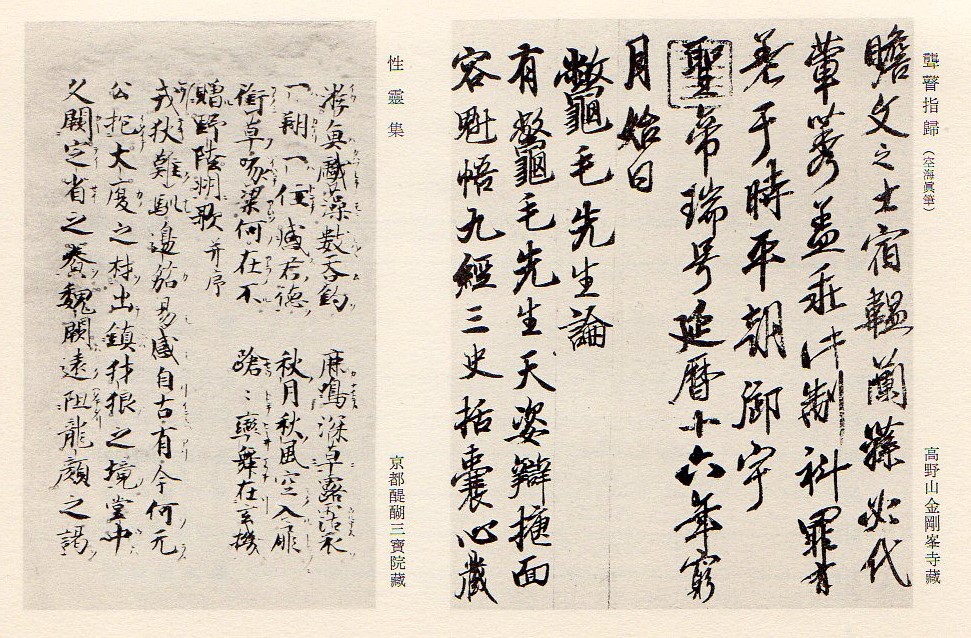 聾瞽指歸(空海眞筆)
高野山金剛峯寺藏
瞻文之士宿韞蘭藻必代
葷莠蓋乖此制科罪有
差于時平朝御宇
聖帝瑞号延暦十六年窮
月始日
鼈毛先生論
有鼈毛先生天姿辯捷面
容魁悟九經三史括囊心藏
性靈集
京都醍醐三寶院藏
游魚戲藻數呑鉤 鹿鳴深草露霑衣
一翔一住感君德 秋月秋風空入扉
銜草啄粱何在不 蹌〻率舞在玄機
贈野陸州歌并序
戎狄難馴邊笳易感自古有今何无
公抱大廈之材出鎮犲狼之境堂中
久闕定省之養魏闕遠阻龍顏之謁